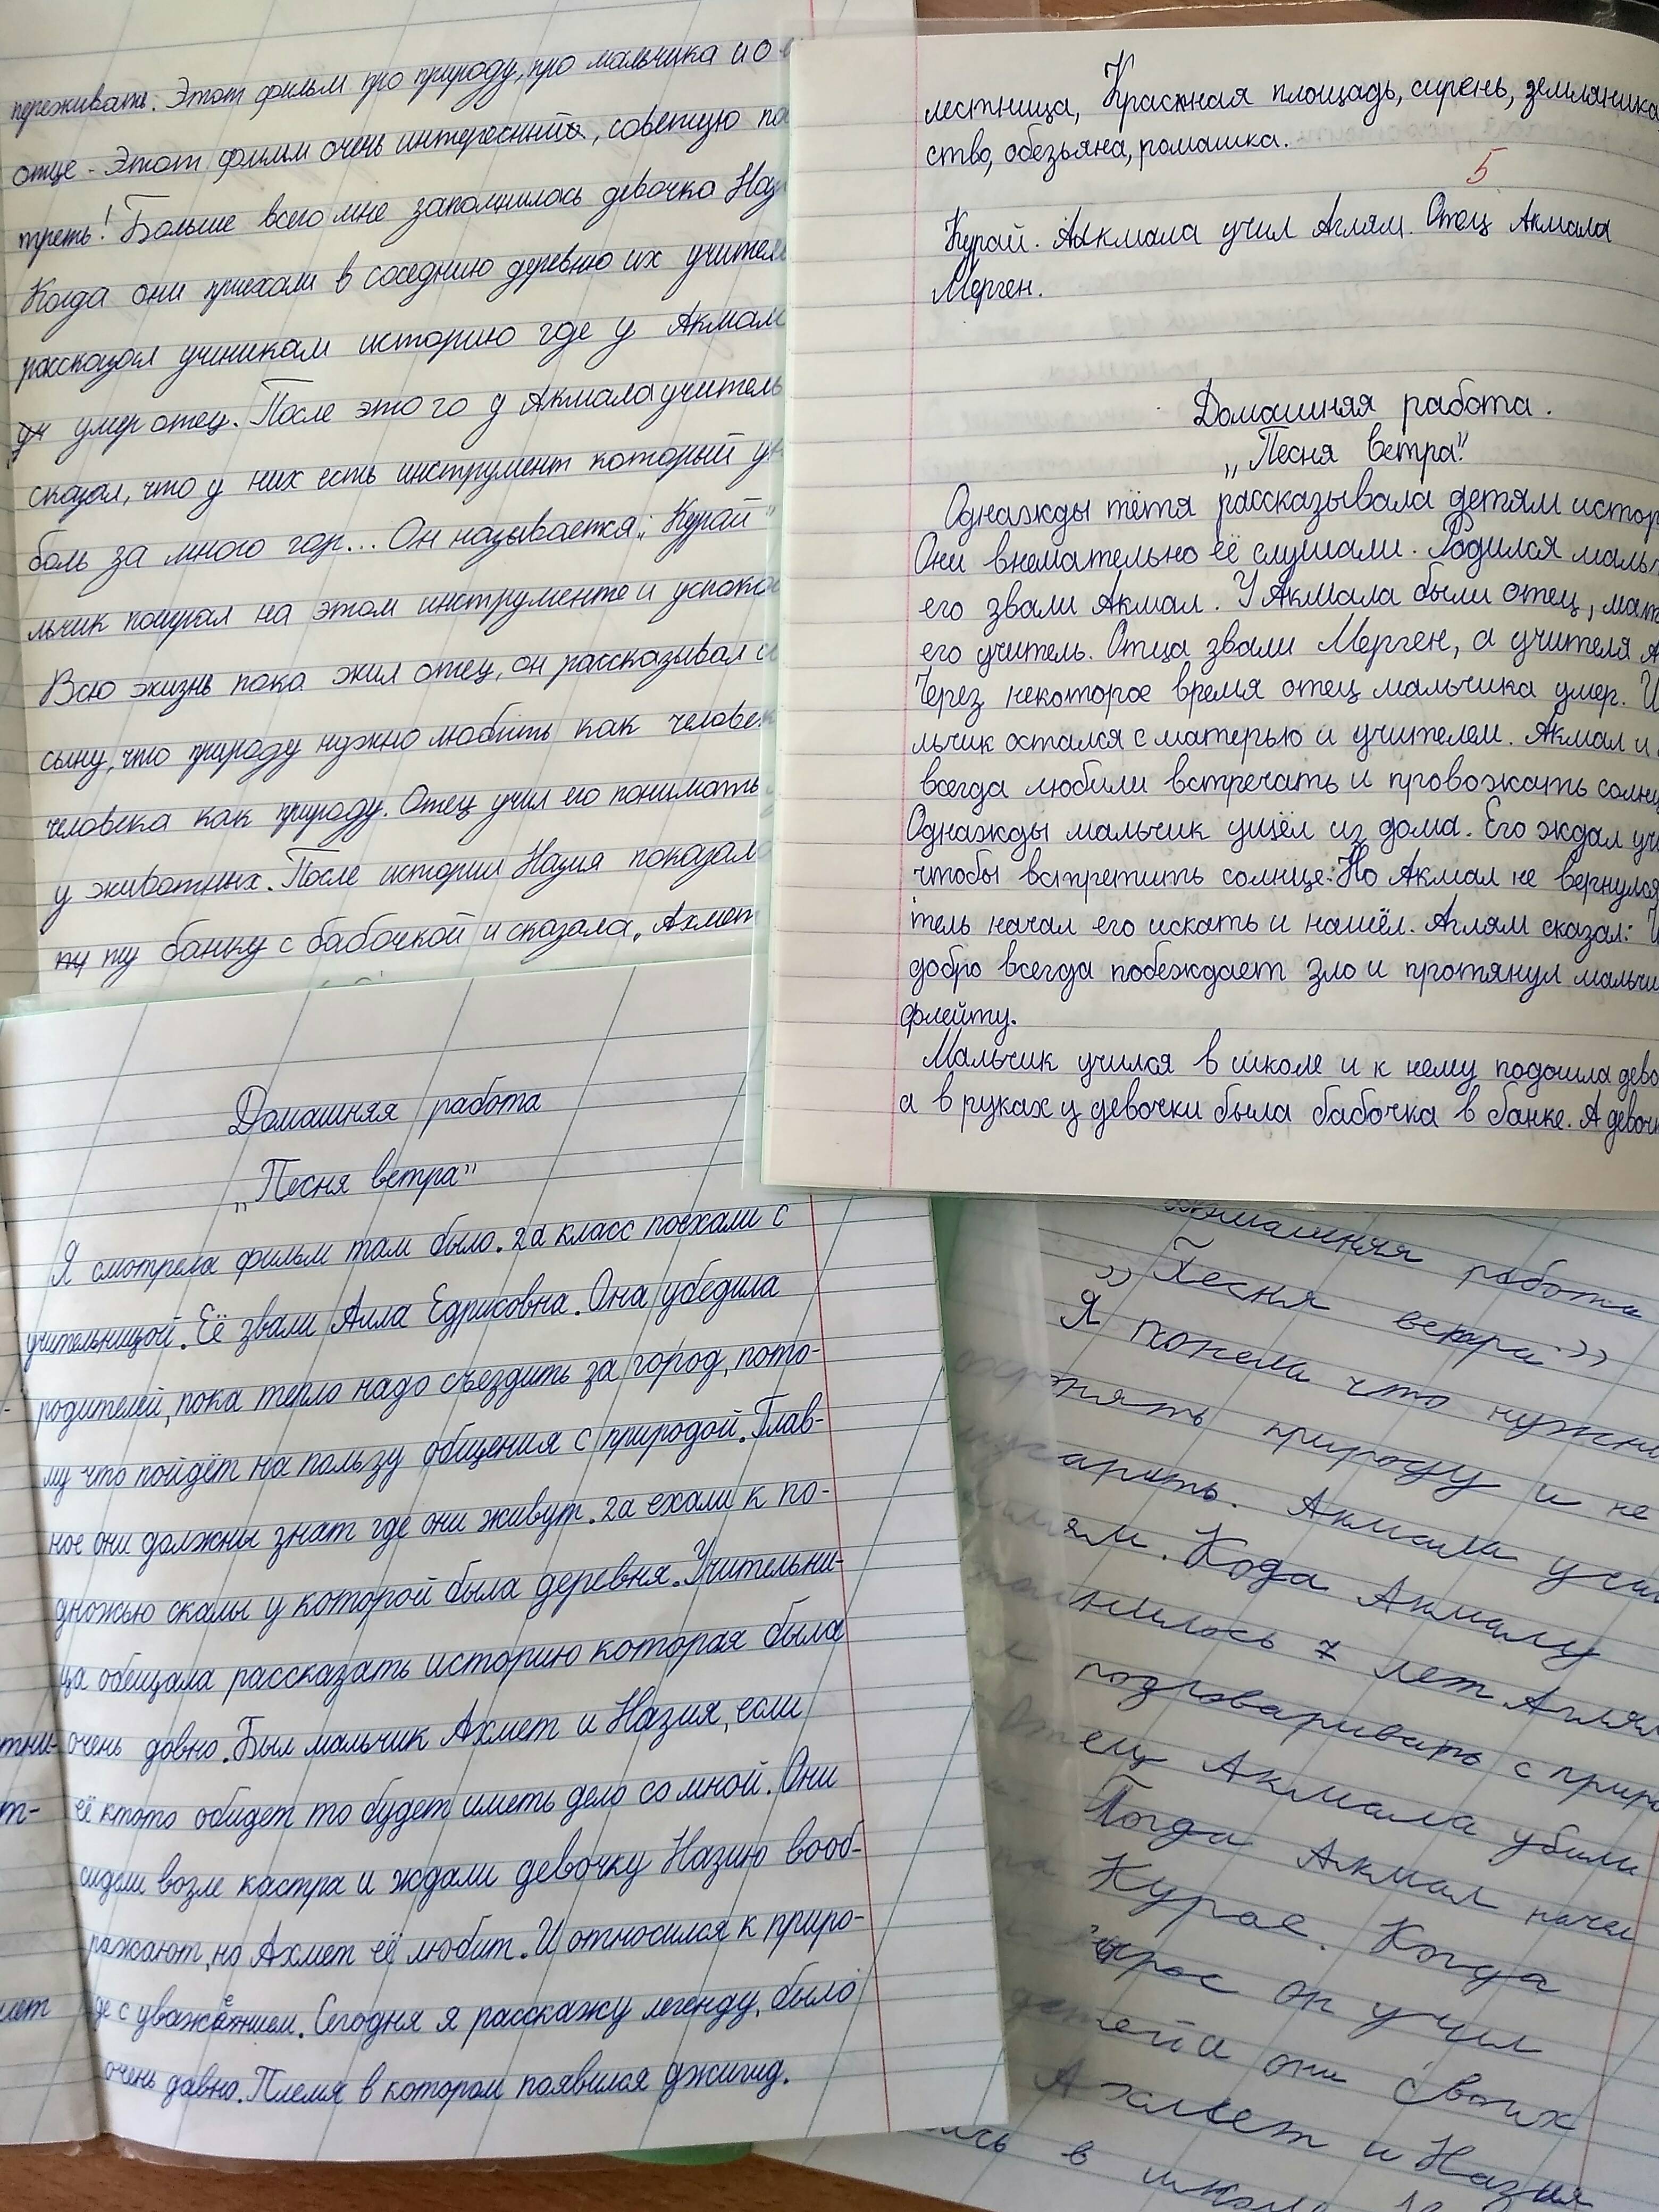 переживать. Этот фильм про природу, про мальчика и о
отце. Этот фильм очень интересный, советую по
треть! Больше всего мне запомнилось девочка Наз
Когда они приехали в соседнию деревню их учитель
рассказал ученикам историю где у Акмал
умер отец. После этого у Акмала учитель
сказал, что у них есть инструмент который ун
боль за много гор... Он называется „Курай”
льчик поиграл на этом инструменте и успоко
Всю жизнь пока жил отец, он рассказывал с
сыну, что природу нужно любить как человек
человека как природу. Отец учил его понимать
у животных. После истории Назия показала
ту банку с бабочкой и сказала „Ахмет
лестница, Красная площадь, сирень, земляника,
ство, обезьяна, ромашка.
5
Курай. Акмала учил Аглям. Отец Акмала
Мерген.
Домашняя работа.
„Песня ветра”.
Однажды тётя рассказывала детям истор
Они внемательно её слушали. Родился маль
его звали Акмал. У Акмала были отец, мат
его учитель. Отца звали Мерген, а учителя А
Через некоторое время отец мальчика умер. И
льчик остался с матерью и учителем. Акмал и
всегда любили встречать и провожать солнц
Однажды мальчик ушёл из дома. Его ждал уч
чтобы встретить солнце. Но Акмал не вернулся
тель начал его искать и нашёл. Аглям сказал: И
добро всегда побеждает зло и протянул мальчи
флейту.
Мальчик учился в школе и к нему подошла дево
а в руках у девочки была бабочка в банке. А девоч
Домашняя работа
„Песня ветра”
Я смотрела фильм там было. 2а класс поехали с
учительницой. Её звали Алла Едрисовна. Она убедила
родителей, пока тепло надо съездить за город, пото-
му что пойдёт на пользу общения с природой. Глав-
ное они должны знат где они живут. 2а ехали к по-
дножью скалы у которой была деревня. Учительни-
ца обещала рассказать историю которая была
очень давно. Был мальчик Ахмет и Назия, если
её ктото обидет то будет иметь дело со мной. Они
сидели возле кастра и ждали девочку Назию вооб-
ражают, но Ахмет её любит. И относился к приро-
де с уважением. Сегодня я расскажу легенду, было
очень давно. Племя в котором появился джигид.
тни-
т-
лет
Домашняя работа
„Песня ветра”
Я поняла что нужно
нять природу и не
мусарить. Акмала учил
лям. Кода Акмалу
нилось 7 лет Аглям
подговаривать с приро
Отец Акмала убили
Тогда Акмал начал
на Курае. Когда
рос он учил
детей а они своих
Ахмет и Назия
лись в школ